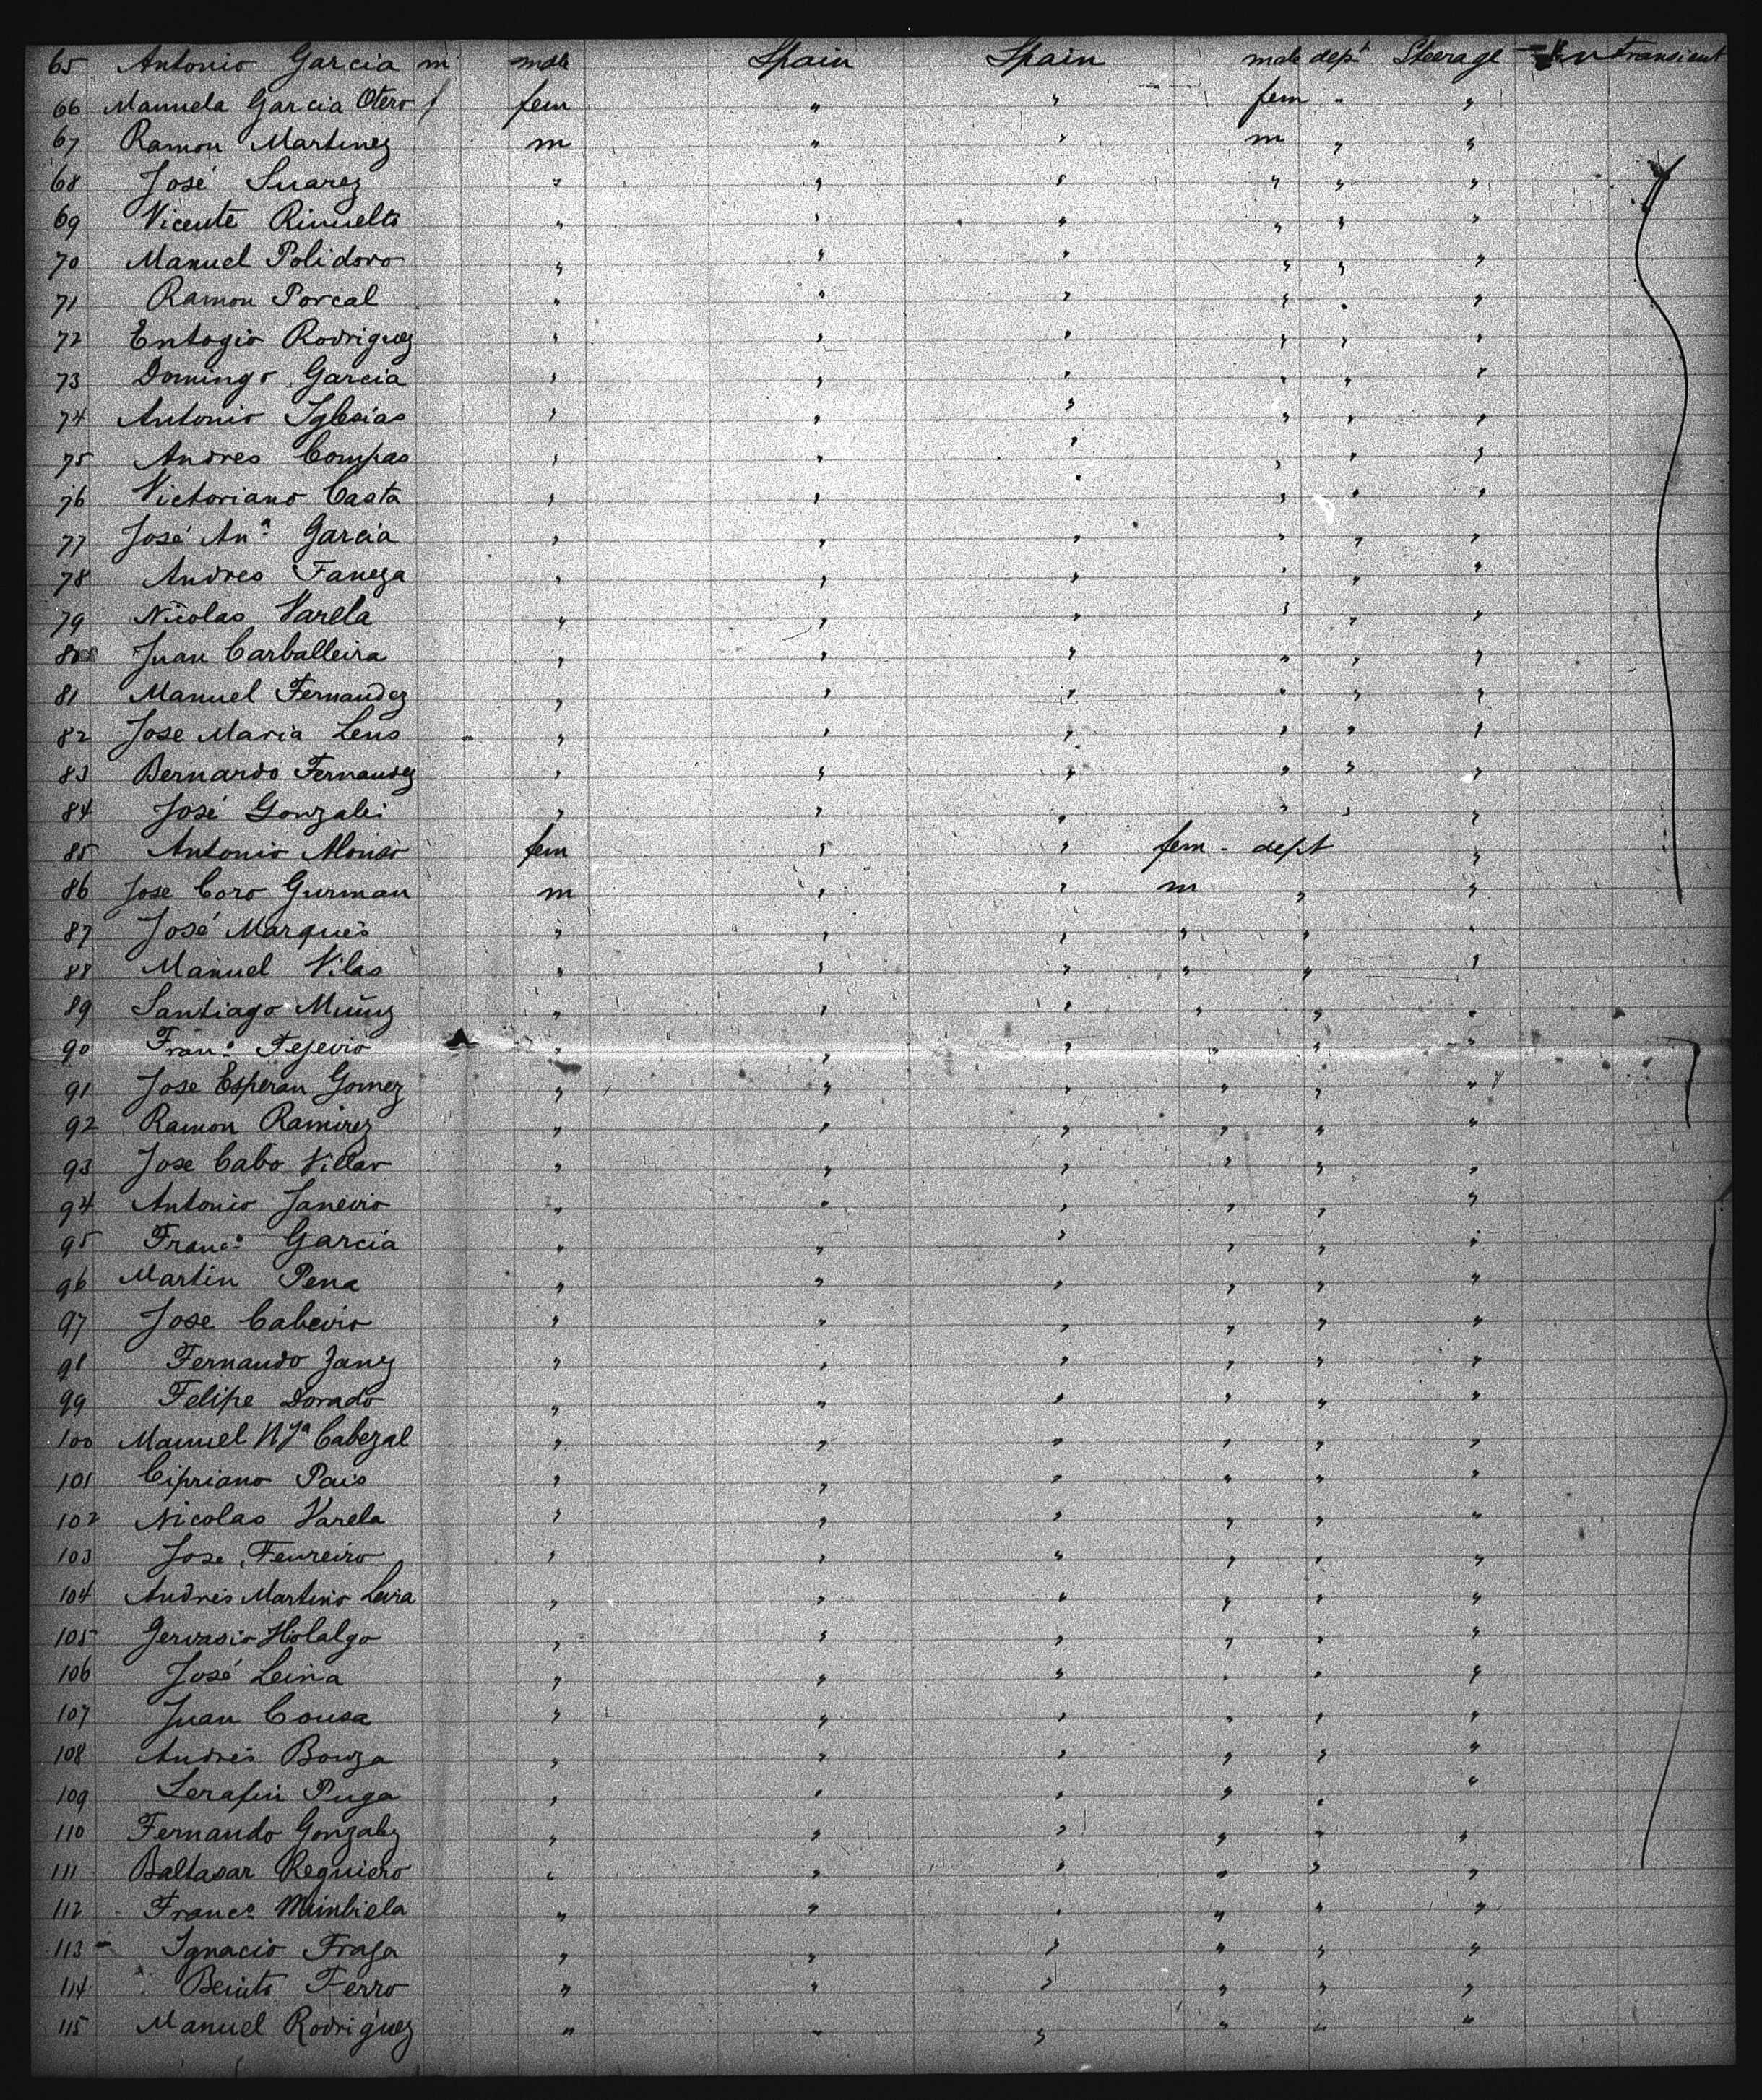 65 Antonio Garcia m male Spain Spain male dept Steerage Transient
66 Manuela Garcia Otero f fem " " fem " "
67 Ramon Martinez m " " m " "
68 José Suarez " " " " " "
69 Vicente Rimuelto " " " " " "
70 Manuel Polidoro " " " " " "
71 Ramon Porcal " " " " " "
72 Entogio Rodriguez " " " " " "
73 Domingo Garcia " " " " " "
74 Antonio Iglesias " " " " " "
75 Andres Compas " " " " " "
76 Victoriano Casta " " " " " "
77 José Anª Garcia " " " " " "
78 Andres Faneza " " " " " "
79 Nicolas Varela " " " " " "
80 Juan Carballeira " " " " " "
81 Manuel Fernandez " " " " " "
82 Jose Maria Lens " " " " " "
83 Bernardo Fernandez " " " " " "
84 José Gonzalei " " " " " "
85 Antonio Alonso fem " " fem - dept "
86 Jose Coro Gurman m " " m " "
87 José Marques " " " " " "
88 Manuel Vilas " " " " " "
89 Santiago Muñiz " " " " " "
90 Franº Tejeiro " " " " " "
91 Jose Esperan Gomez " " " " " "
92 Ramon Ramirez " " " " " "
93 Jose Cabo Villar " " " " " "
94 Antonio Janeiro " " " " " "
95 Francº Garcia " " " " " "
96 Martin Pena " " " " " "
97 Jose Cabeiro " " " " " "
98 Fernando Janez " " " " " "
99 Felipe Dorado " " " " " "
100 Manuel Cabezal " " " " " "
101 Cipriano Pais " " " " " "
102 Nicolas Varela " " " " " "
103 Jose Feureiro " " " " " "
104 Andres Martinio Leira " " " " " "
105 Gervasio Holalgo " " " " " "
106 José Leina " " " " " "
107 Juan Cousa " " " " " "
108 Andrés Bouza " " " " " "
109 Serafin Puga " " " " " "
110 Fernando Gonzalez " " " " " "
111 Baltasar Reguiero " " " " " "
112 Francº Mimbiela " " " " " "
113 Ignacio Fraga " " " " " "
114 Benito Ferro " " " " " "
115 Manuel Rodriguez " " " " " "